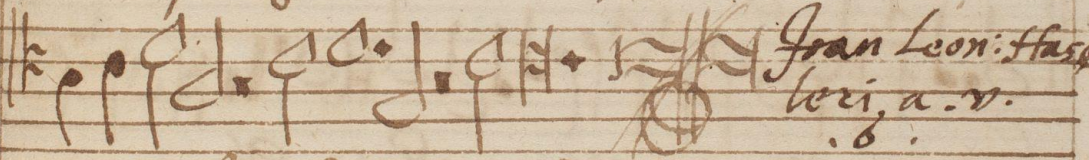 Joan Leon: Has
leri. a. v.
. 6 .